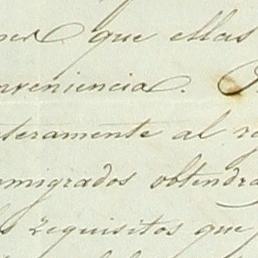 que ellas
nveniencia.
teramente al
migrados obtendra
requisitos que